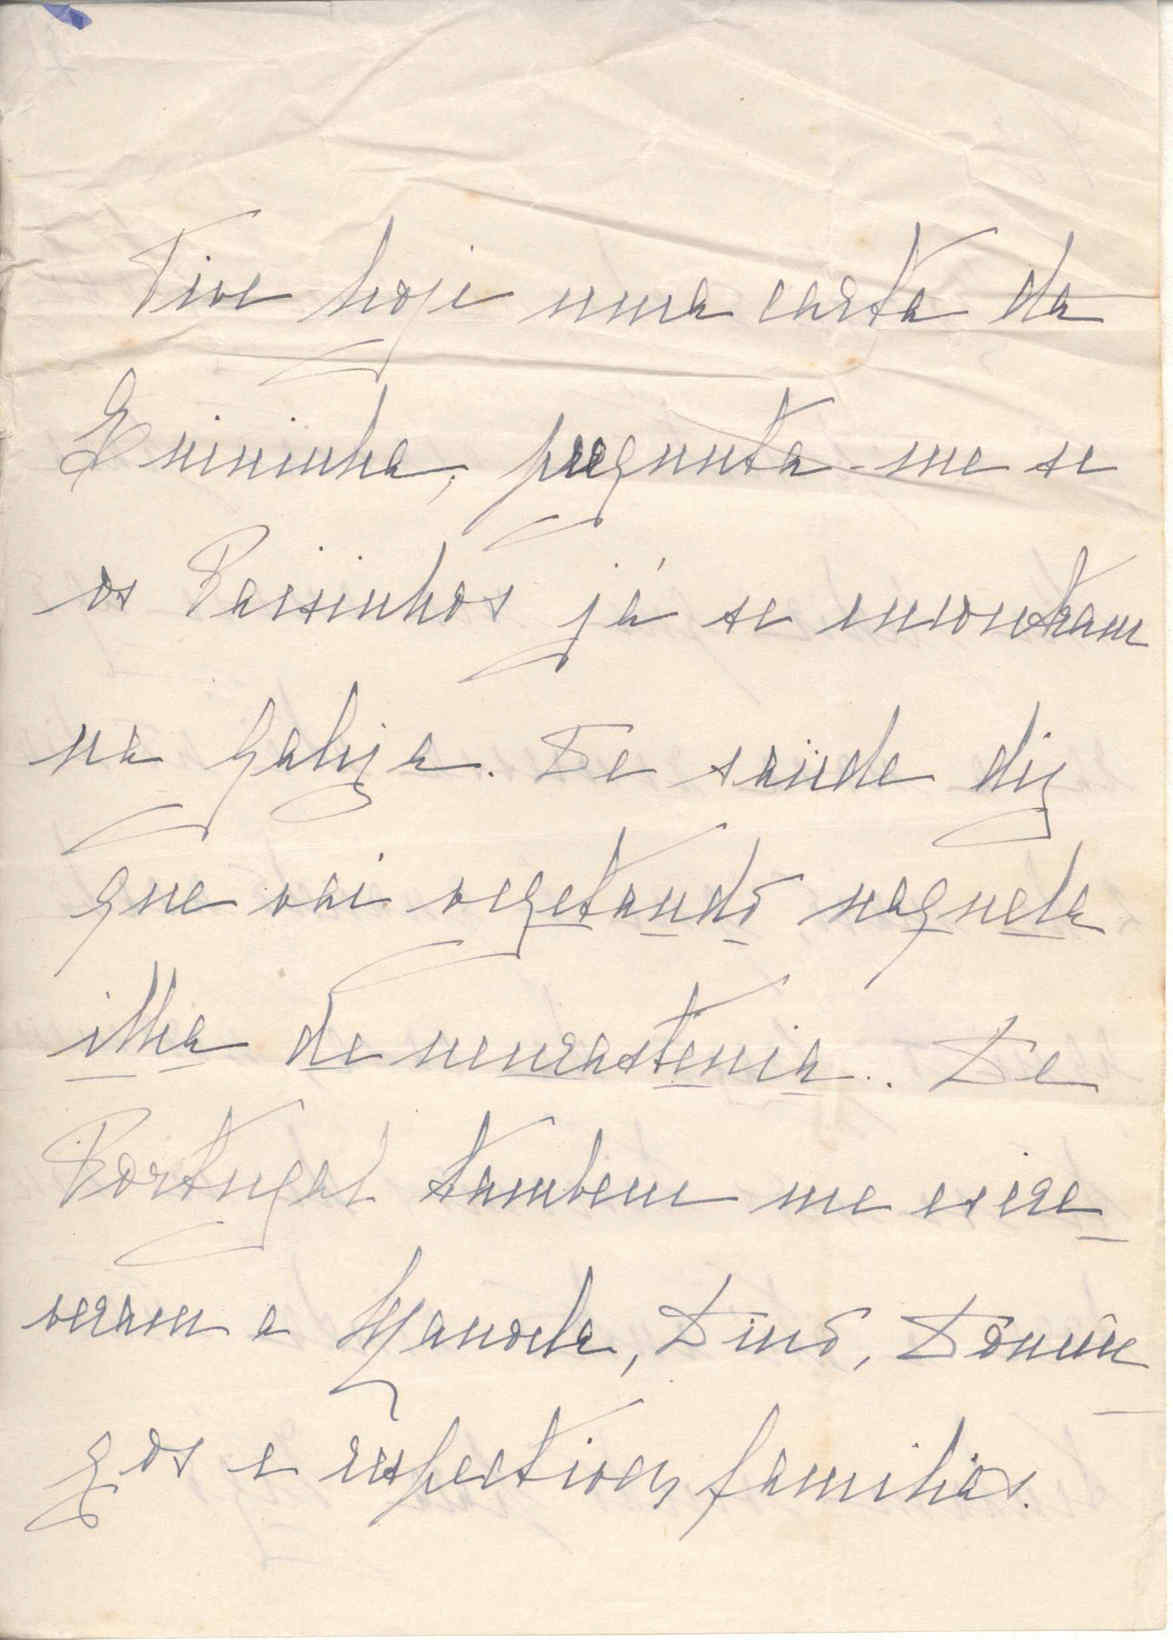 Tive hoje uma carta da
Enininha, pregunta-me se
os Paisinhos já se encontram
na Galiza. De saúde diz
que vai vegetando naquela
ilha de neurastenia. De
Portugal tambem me escre_
veram a Manoela, Dino, Domin_
gos e respectivas familias.